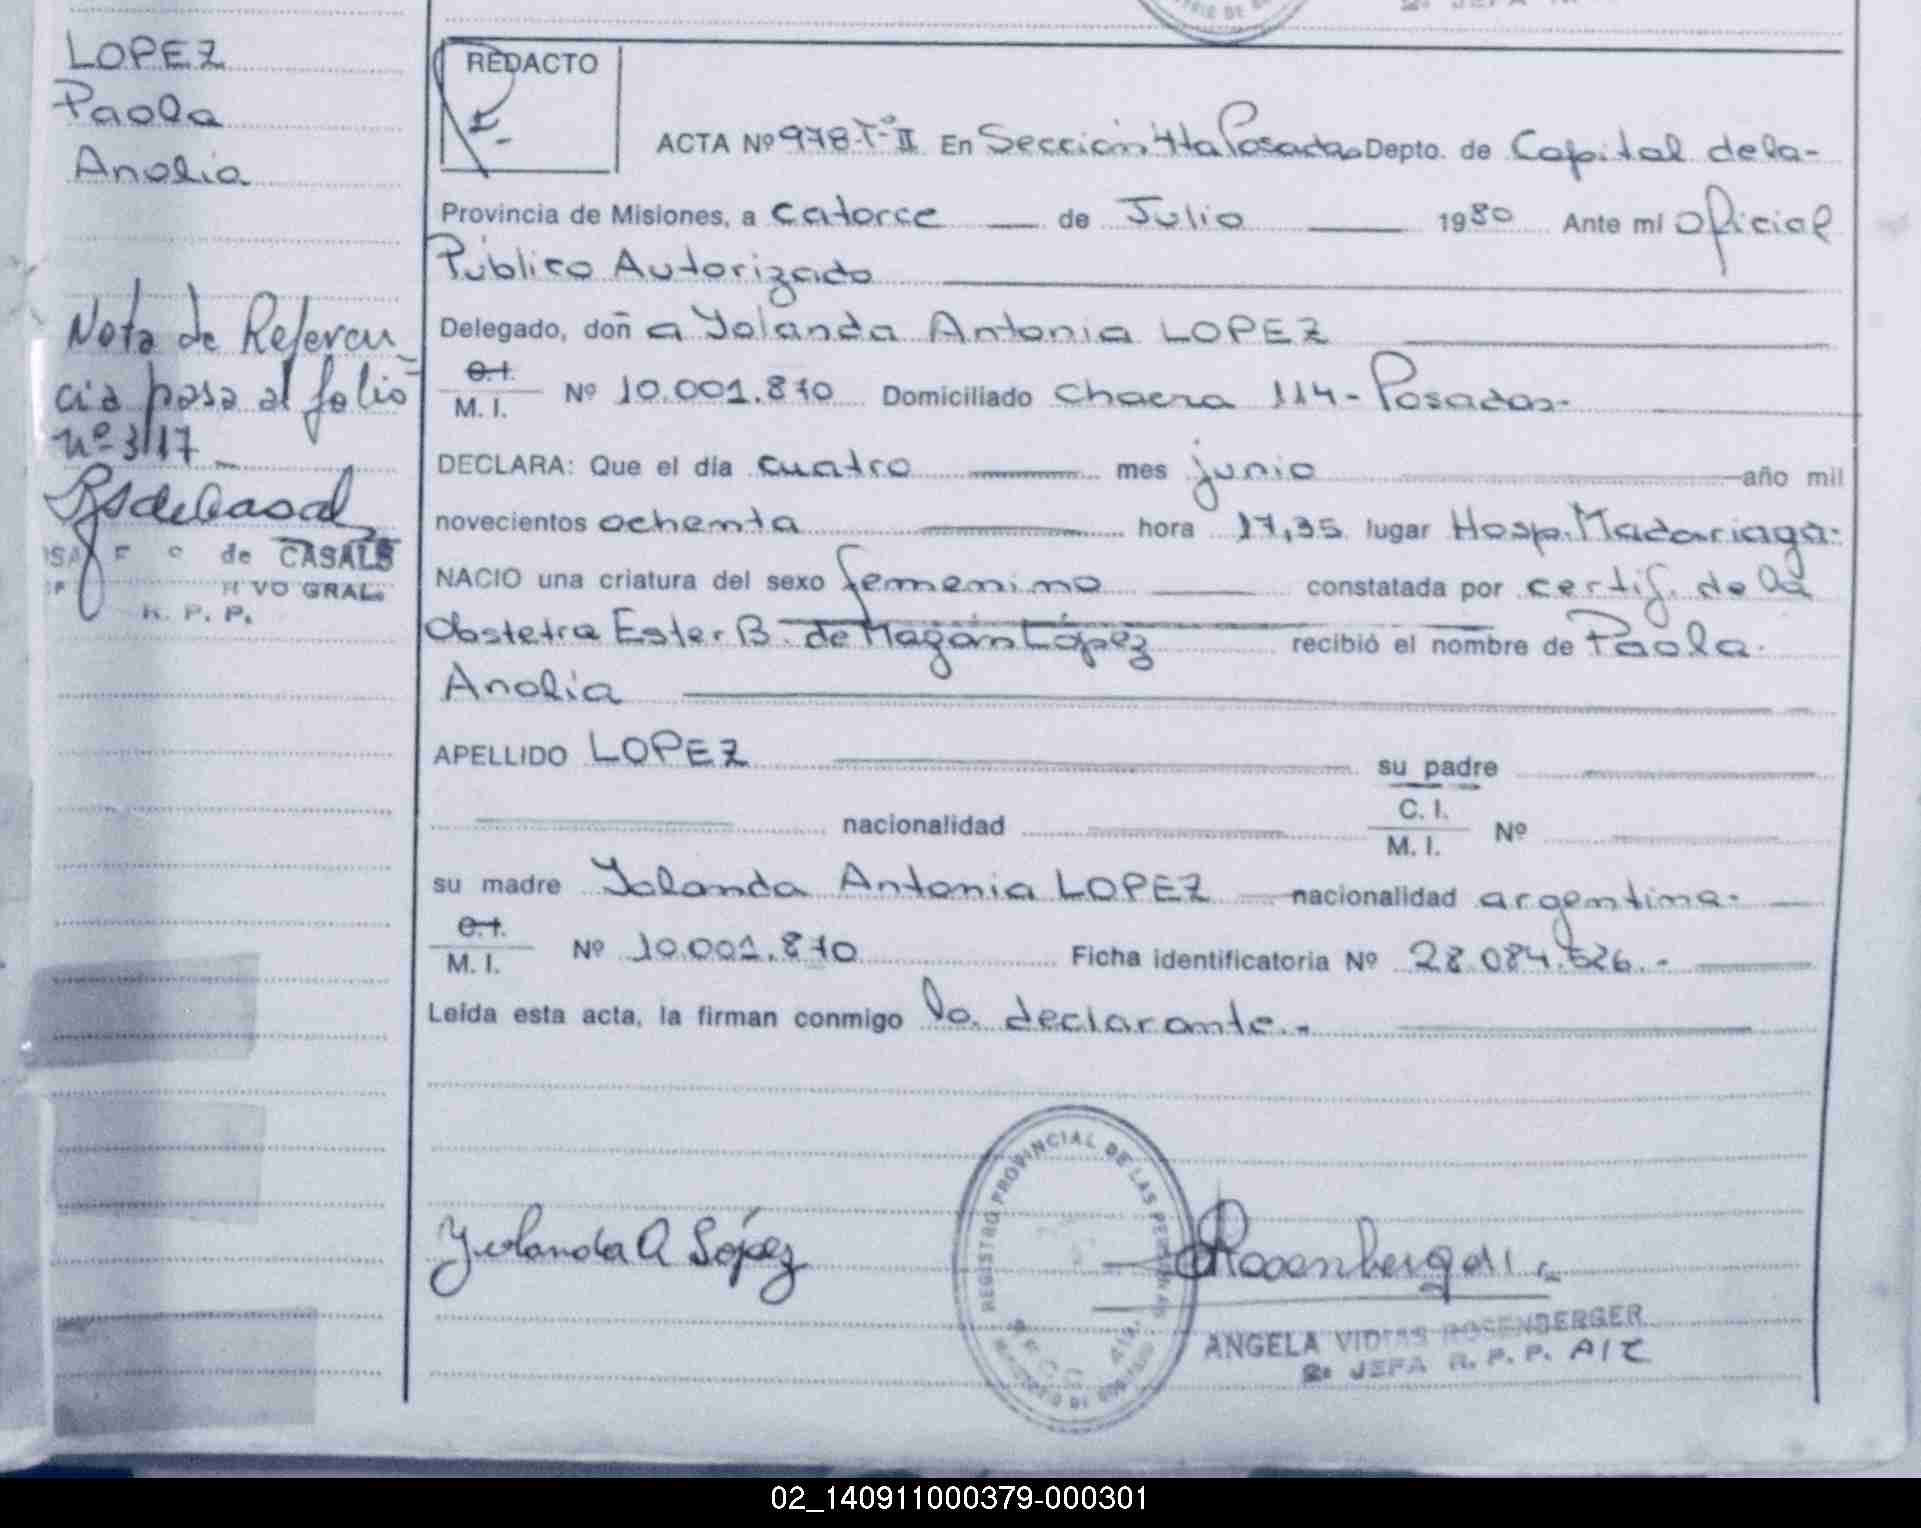 LOPEZ
Paola
Analia
Nota de Referen
cia pasa al folio
nº 317
de CASALS
VO GRAL.
R. P. P.
REDACTO
ACTA Nº 978-Tº II En Sección 4ta Posadas Depto. de Capital de la-
Provincia de Misiones, a catorce de Julio 1980 Ante mi Oficial
Público Autorizado
Delegado, doñ a Yolanda Antonia LOPEZ
C.I.
M. I. Nº 10.001.870 Domiciliado Chacra 114- Posadas-
DECLARA: Que el día cuatro mes junio año mil
novecientos ochenta hora 17,35 lugar Hosp. Madariaga-
NACIO una criatura del sexo femenino constatada por certif. de la
Obstetra Ester B. de Magán López recibió el nombre de Paola
Analia
APELLIDO LOPEZ su padre
nacionalidad C. I.
M. I. Nº
su madre Yolanda Antonia LOPEZ nacionalidad argentina-
C.I.
M. I. Nº 10.001.870 Ficha identificatoria Nº 28.084.526.-
Leída esta acta, la firman conmigo la declarante.-
Yolanda A López
REGISTRO PROVINCIAL DE LAS PERSONAS
ANGELA VIDIAS ROSENBERGER
2º JEFA R. P. P. A/C
2º JEFA
02_140911000379-000301